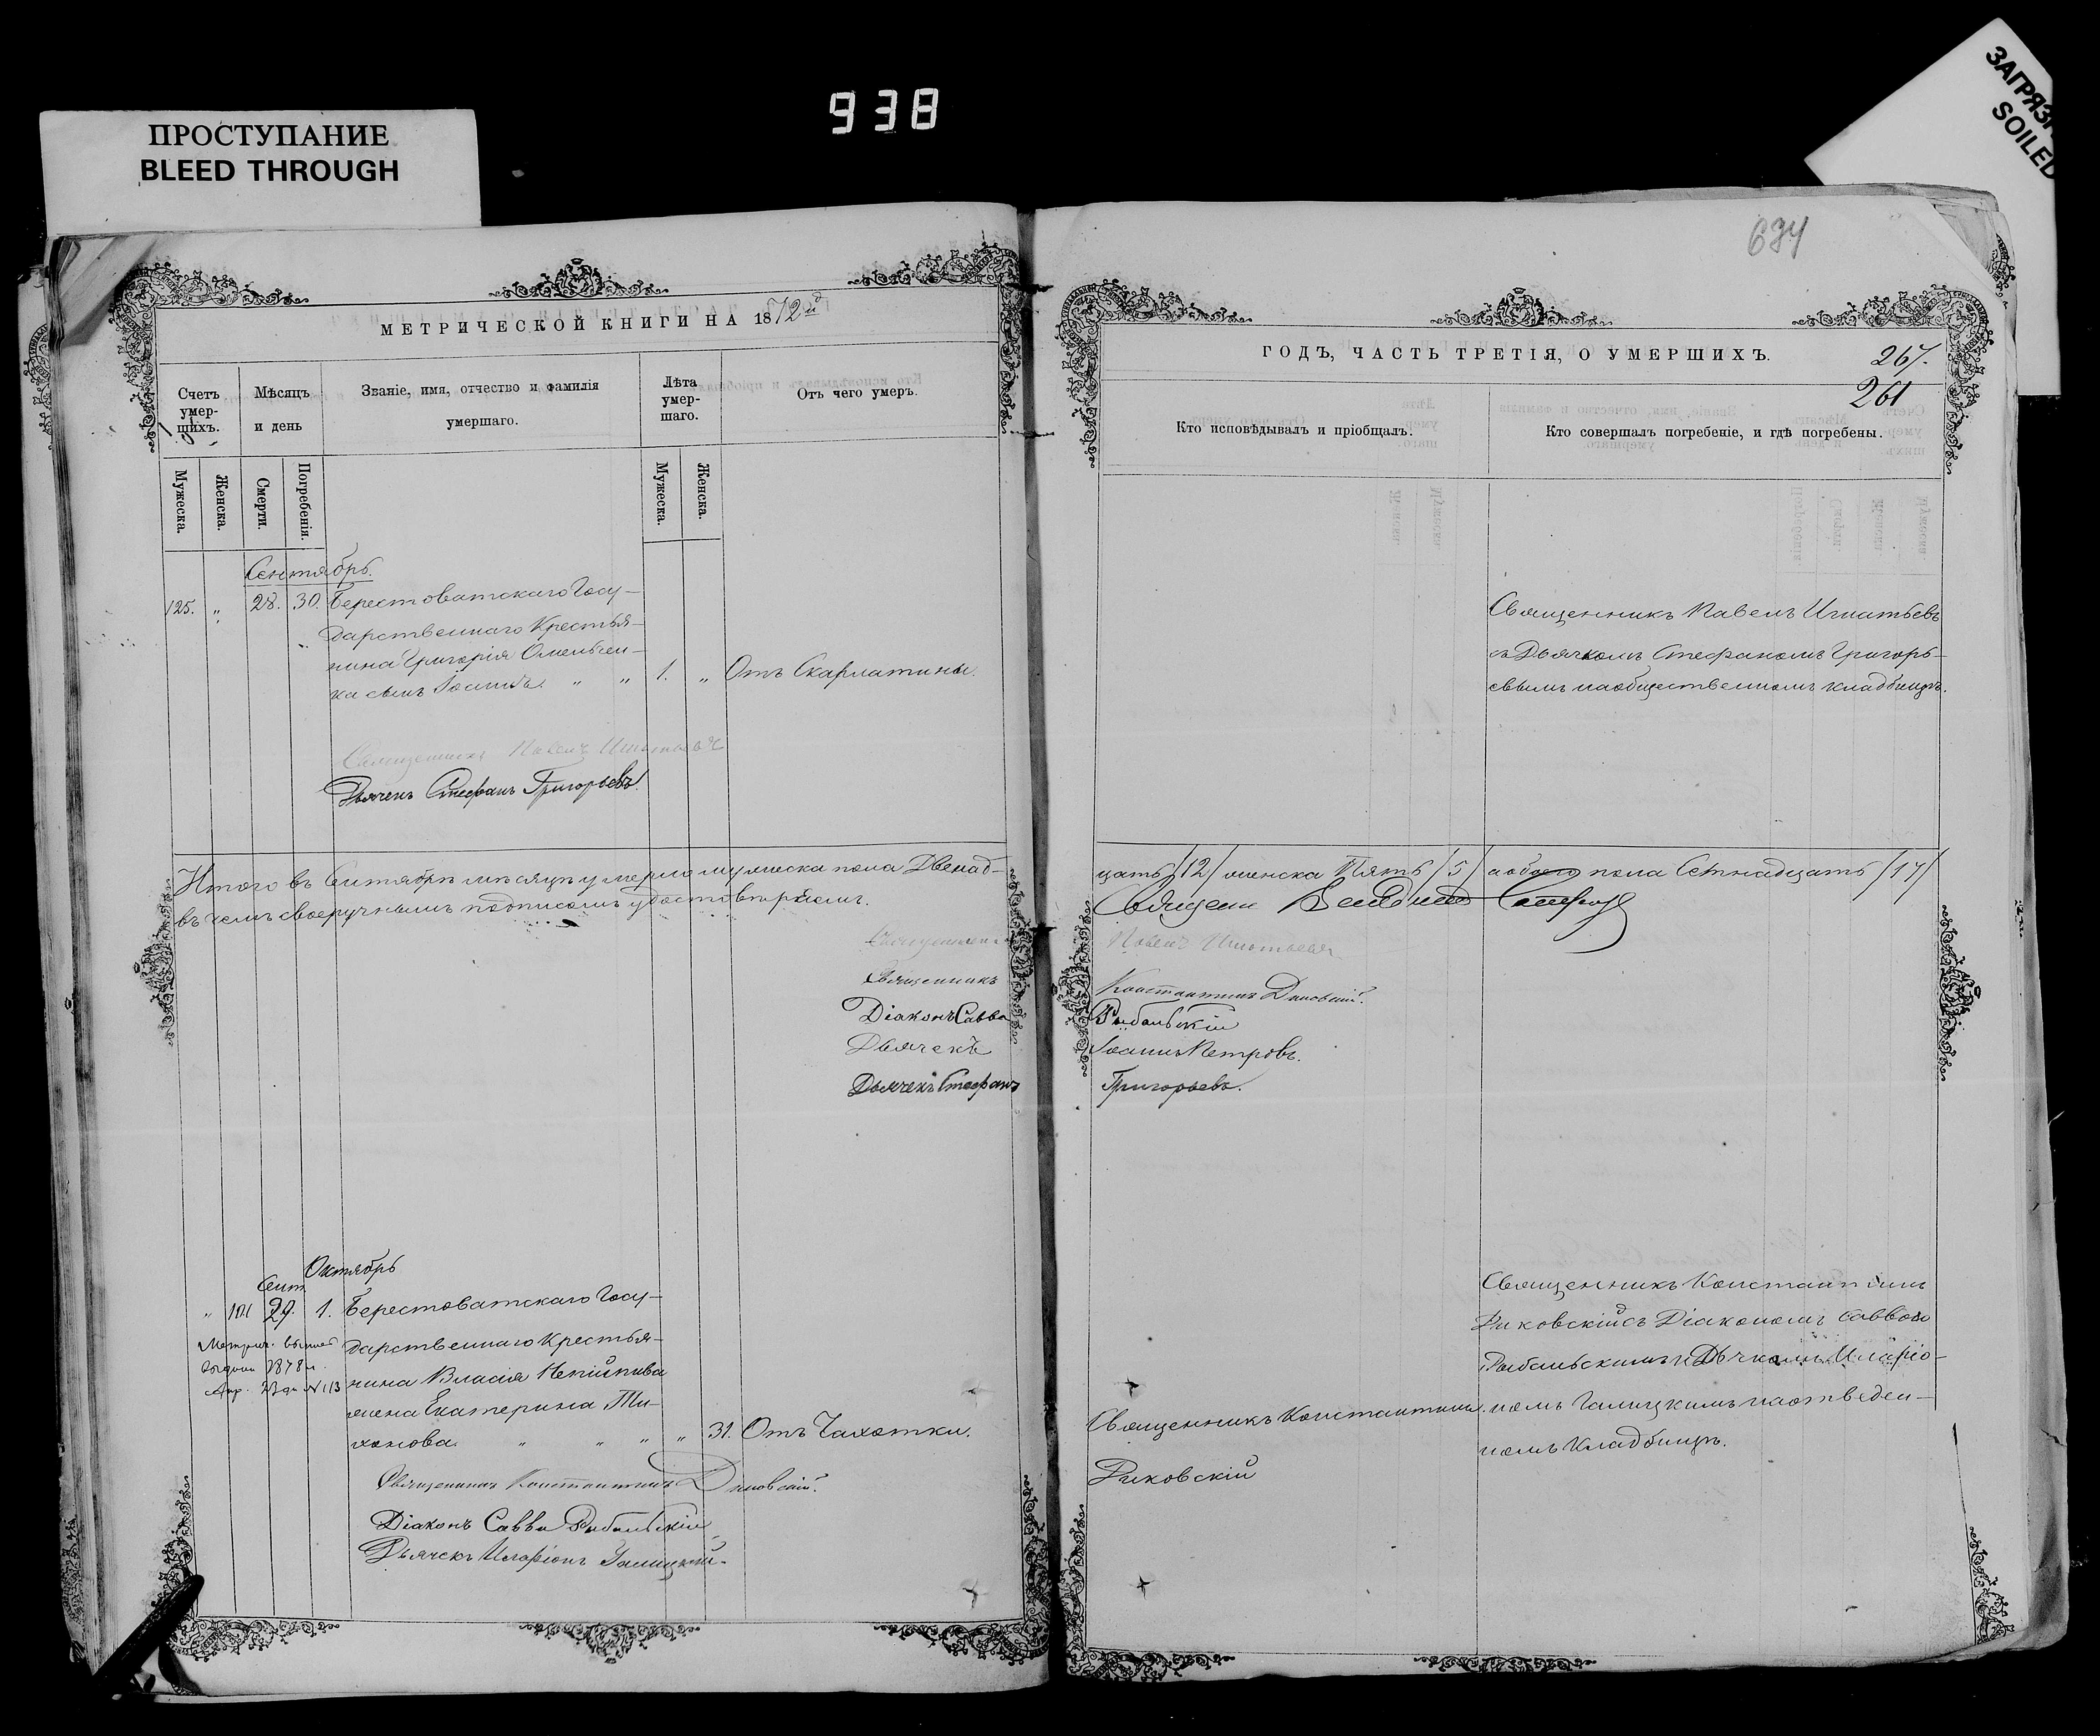 938
ПРОСТУПАНИЕ
BLEED THROUGH
SOILED
694
МЕТРИЧЕСКОЙ КНИГИ НА 1872й
Счетъ умер-шихъ.
Мѣсяцъ и день
Званіе, имя, отчество и фамилія умершаго.
Лѣта умер-шаго.
Отъ чего умеръ.
Мужеска.
Женска.
Смерти.
Погребенія.
Мужеска.
Женска.
Сентябрь.
125. „ 28. 30. Берестоватскаго Госу-
дарственнаго Крестья-
нина Григорія Омельчен-
ка сынъ Іоаннъ. „ „ 1. „ Отъ Скарлатины.
Священникъ Павелъ Игнатьевъ
Дьячекъ Стефанъ Григорьевъ.
Итого въ Сентябрѣ мѣсяцѣ умерло мужеска пола Двенад-
въ чемъ своеручнымъ подписомъ удостовѣряемъ.
Священникъ
Священникъ
Діаконъ Савва
Дьячекъ
Дьячекъ Стефанъ
Октябрь
Сент.
„ 101 29. 1. Берестоватскаго Госу-
дарственнаго Крестья-
нина Власія Непійпива
жена Екатерина Ти-
хонова. „ „ „ „ 31. Отъ Чахотки.
1878 г.
№ 113
Священникъ Константинъ Диковскій.
Діаконъ Савва Рыбальскій
Дьячекъ Иларіонъ Галицкій.
ГОДЪ, ЧАСТЬ ТРЕТІЯ, О УМЕРШИХЪ.
267.
261
Кто исповѣдывалъ и пріобщалъ.
Кто совершалъ погребеніе, и гдѣ погребены.
Священникъ Павелъ Игнатьевъ
съ Дьячкомъ Стефаномъ Григорь-
евымъ на общественномъ кладбищѣ.
цать /12/ женска Пять /5/ а обоего пола Семнадцать /17/
Священ
Павелъ Игнатьевъ
Константинъ Диковскій.
Рыбальскій
Іоаннъ Петровъ.
Григорьевъ.
Священникъ Константинъ
Диковскій
Священникъ Константинъ
Диковскій съ Діакономъ Саввою
Рыбальскимъ и Дьячкомъ Иларіо-
номъ Галицкимъ на отведен-
номъ кладбищѣ.